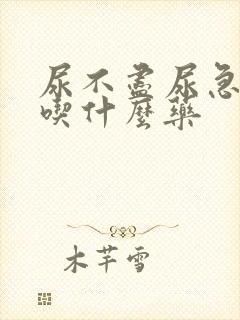 尿不盡尿急
喫什麼藥
木芊雪